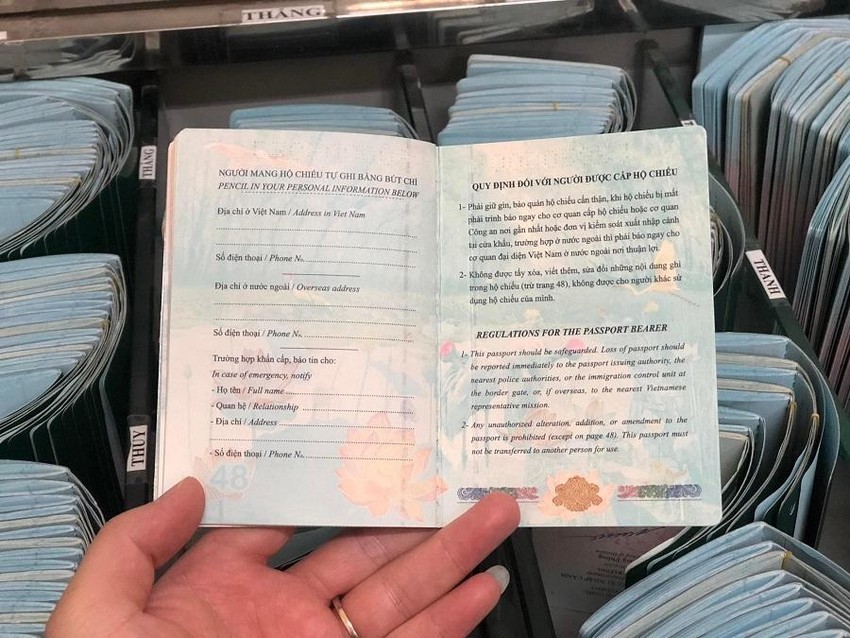 THẮNG
THẮNG
NGƯỜI MANG HỘ CHIẾU TỰ GHI BẰNG BÚT CHÌ
PENCIL IN YOUR PERSONAL INFORMATION BELOW
Địa chỉ ở Việt Nam / Address in Viet Nam
Số điện thoại / Phone No.
Địa chỉ ở nước ngoài / Overseas address
Số điện thoại / Phone No.
Trường hợp khẩn cấp, báo tin cho:
In case of emergency, notify
- Họ tên / Full name
- Quan hệ / Relationship
- Địa chỉ / Address
- Số điện thoại / Phone No.
48
QUY ĐỊNH ĐỐI VỚI NGƯỜI ĐƯỢC CẤP HỘ CHIẾU
1- Phải giữ gìn, bảo quản hộ chiếu cẩn thận, khi hộ chiếu bị mất
phải trình báo ngay cho cơ quan cấp hộ chiếu hoặc cơ quan
Công an nơi gần nhất hoặc đơn vị kiểm soát xuất nhập cảnh
tại cửa khẩu, trường hợp ở nước ngoài thì phải báo ngay cho
cơ quan đại diện Việt Nam ở nước ngoài nơi thuận lợi.
2- Không được tẩy xóa, viết thêm, sửa đổi những nội dung ghi
trong hộ chiếu (trừ trang 48), không được cho người khác sử
dụng hộ chiếu của mình.
REGULATIONS FOR THE PASSPORT BEARER
1- This passport should be safeguarded. Loss of passport should
be reported immediately to the passport issuing authority, the
nearest police authorities, or the immigration control unit at
the border gate, or, if overseas, to the nearest Vietnamese
representative mission.
2- Any unauthorized alteration, addition, or amendment to the
passport is prohibited (except on page 48). This passport must
not be transferred to another person for use.
THANH
THUY